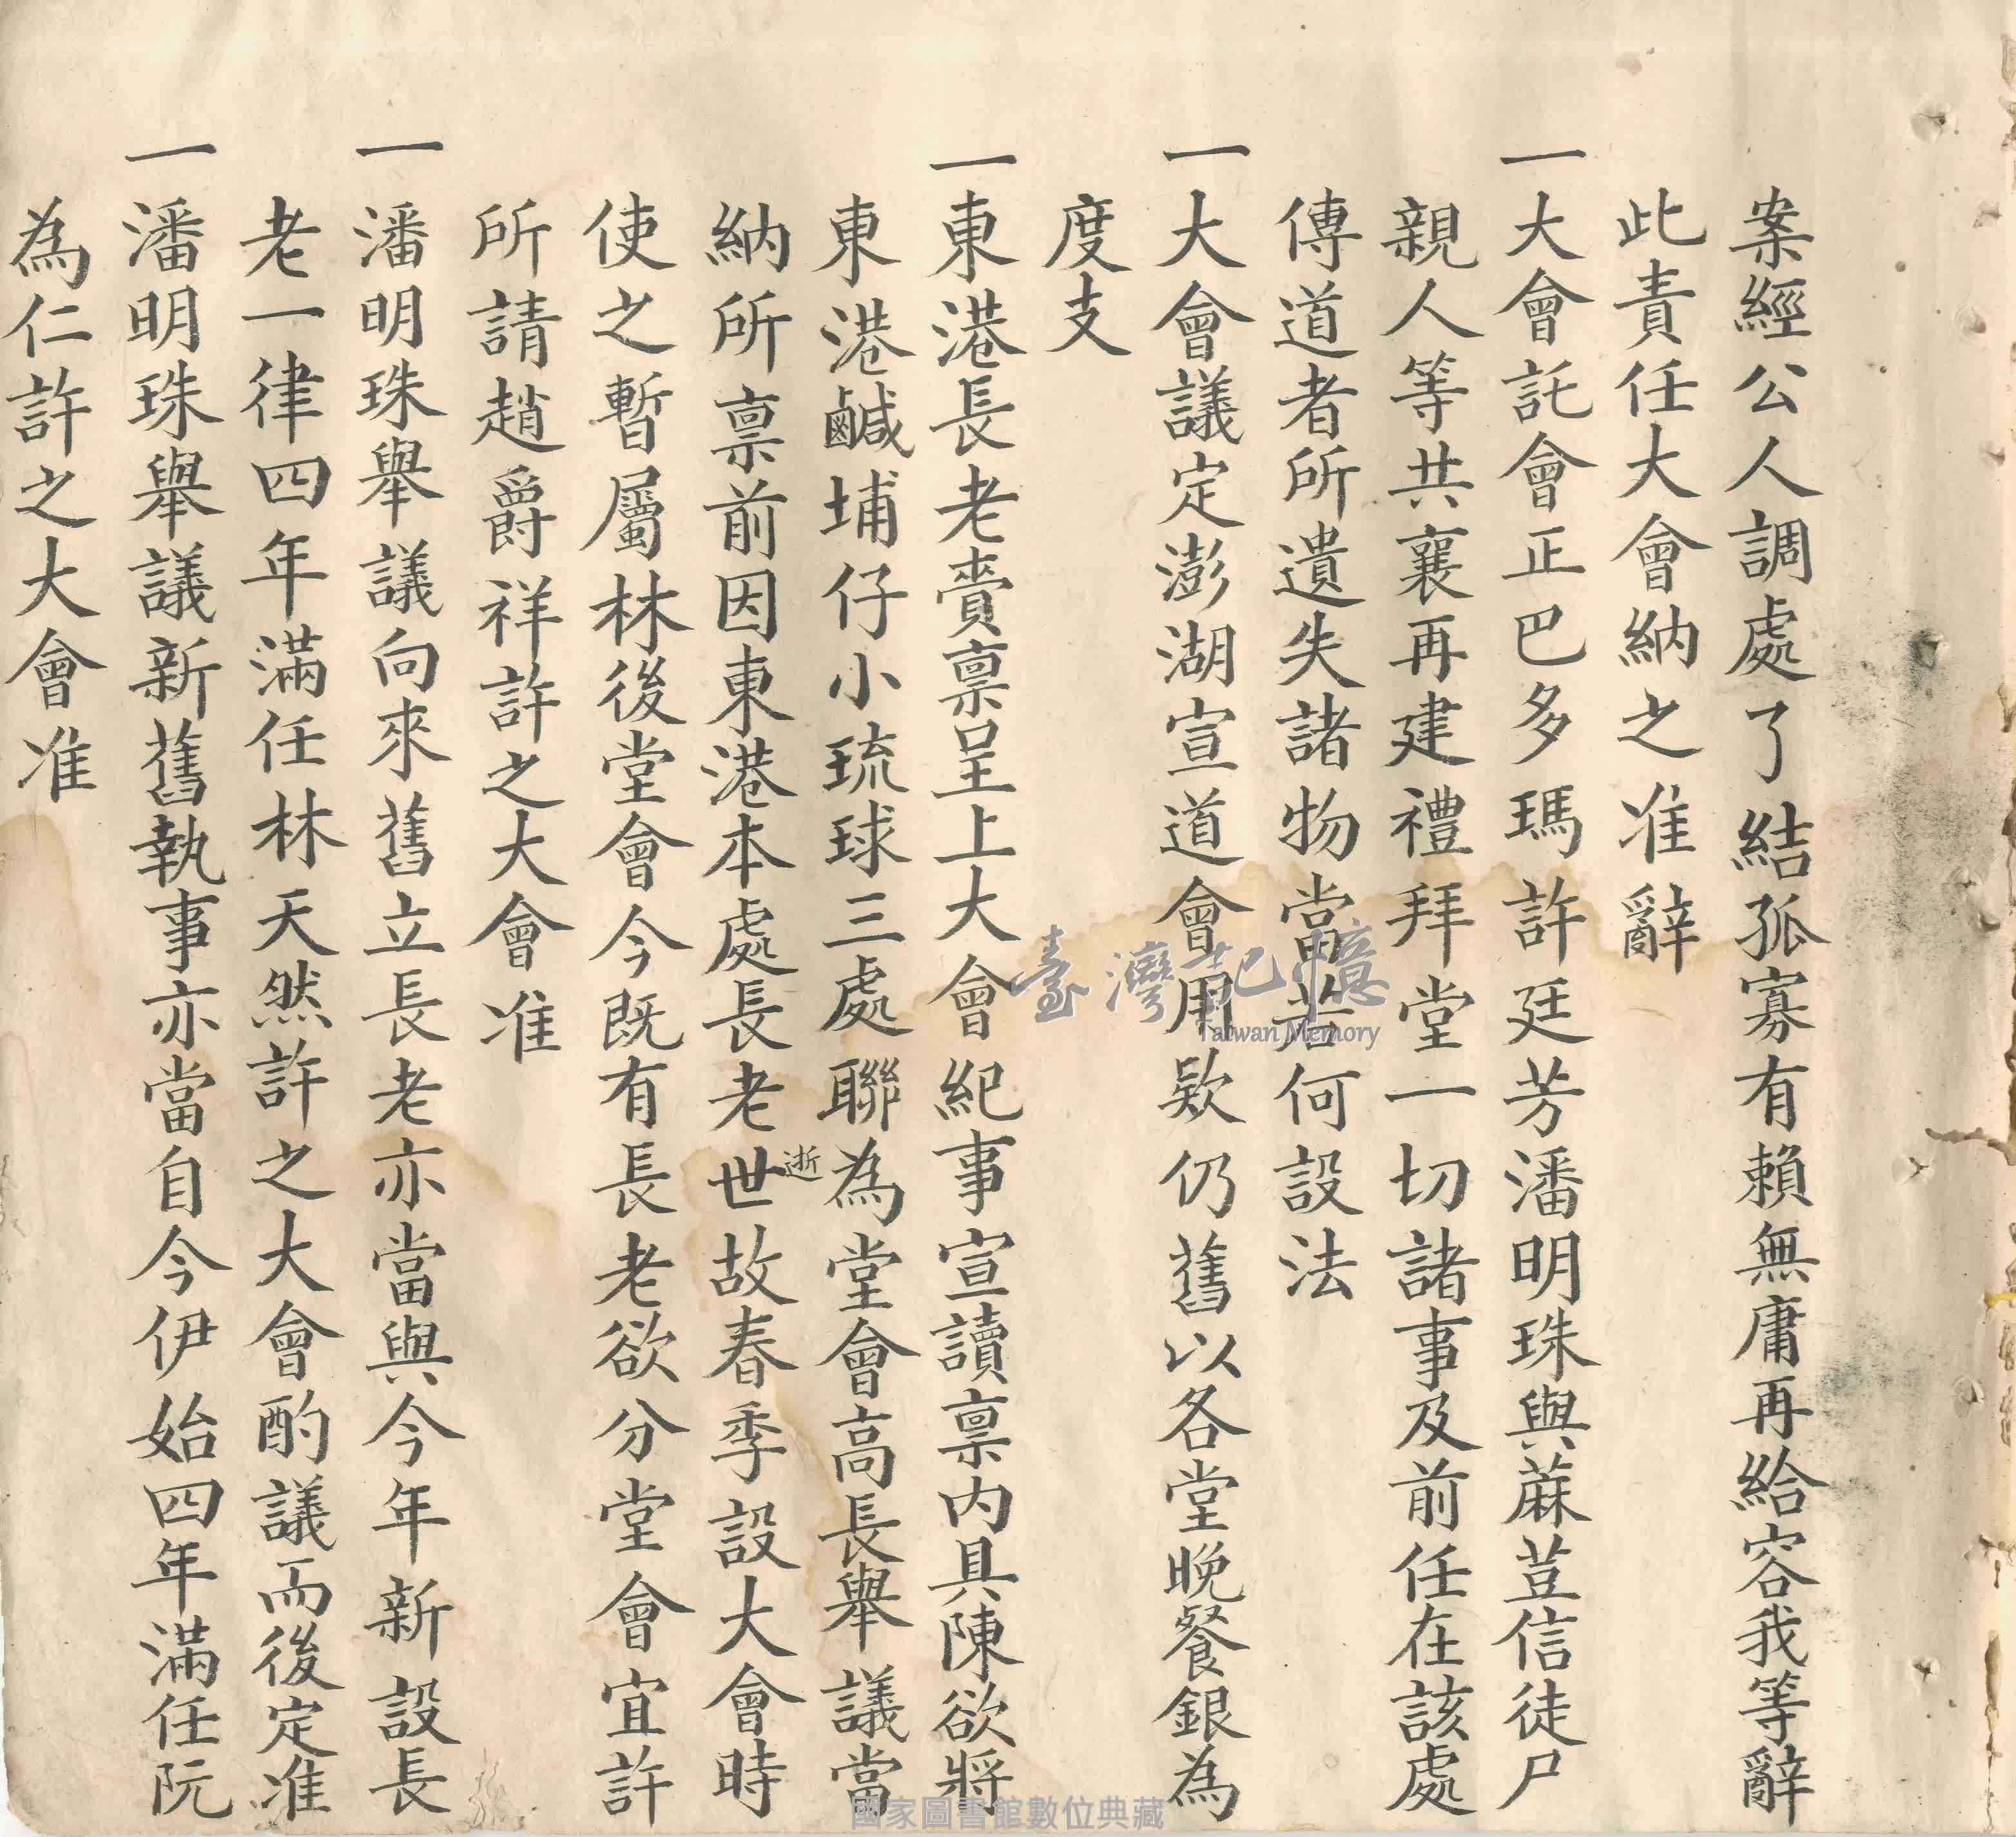 案經公人調處了結孤寡有賴無庸再給容我等辭
此責任大會納之准辭
一大會託會正巴多瑪許廷芳潘明珠與蔴荳信徒尸
親人等共襄再建禮拜堂一切諸事及前任在該處
傳道者所遺失諸物當若何設法
一大會議定澎湖宣道會用欵仍舊以各堂晚餐銀為
度支
一東港長老賫禀呈上大會紀事宣讀禀內具陳欲將
東港鹹埔仔小琉球三處聯為堂會高長舉議當
納所禀前因東港本處長老世逝故春季設大會時
使之暫屬林後堂會今既有長老欲分堂會宜許
所請趙爵祥許之大會准
一潘明珠舉議向來舊立長老亦當與今年新設長
老一律四年滿任林天然許之大會酌議而後定准
一潘明珠舉議新舊執事亦當自今伊始四年滿任阮
為仁許之大會准
臺灣記憶
Taiwan Memory
國家圖書館數位典藏